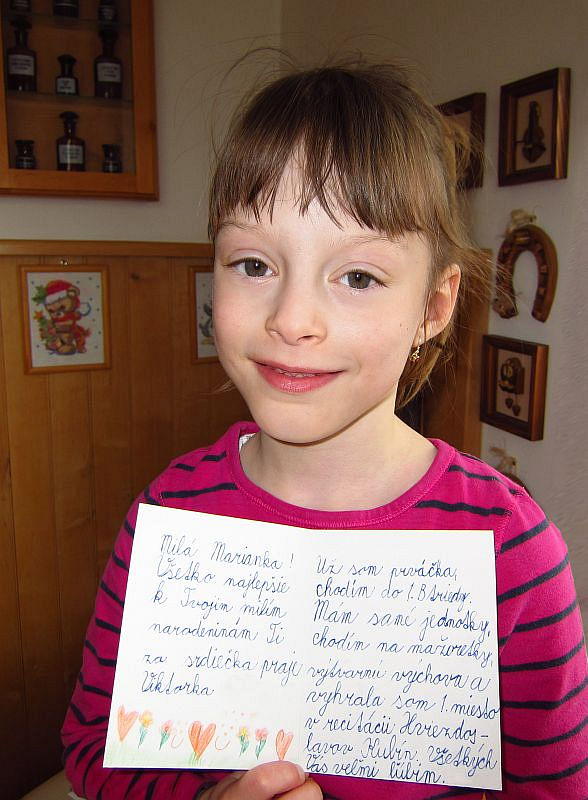 Milá Marianka!
Všetko najlepšie
k Tvojim milím
narodeninám Ti
za srdiečka praje
Viktorka
Už som prváčka,
chodím do 1.B triedy.
Mám samé jednotky,
chodím na mažoretky,
výtvarnú výchova a
vyhrala som 1. miesto
v recitácii Hviezdos-
lavov Kubín. Všetkých
Vás veľmi ľúbim.